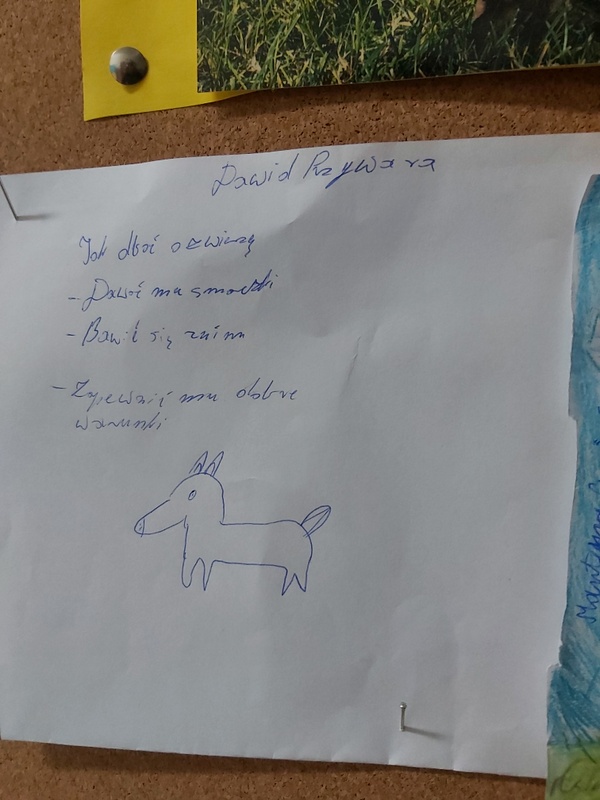 Dawid Przywara
Jak dbać o zwierzę
- Dawać mu smaczki
- Bawić się z nim
- Zapewnić mu dobre
warunki